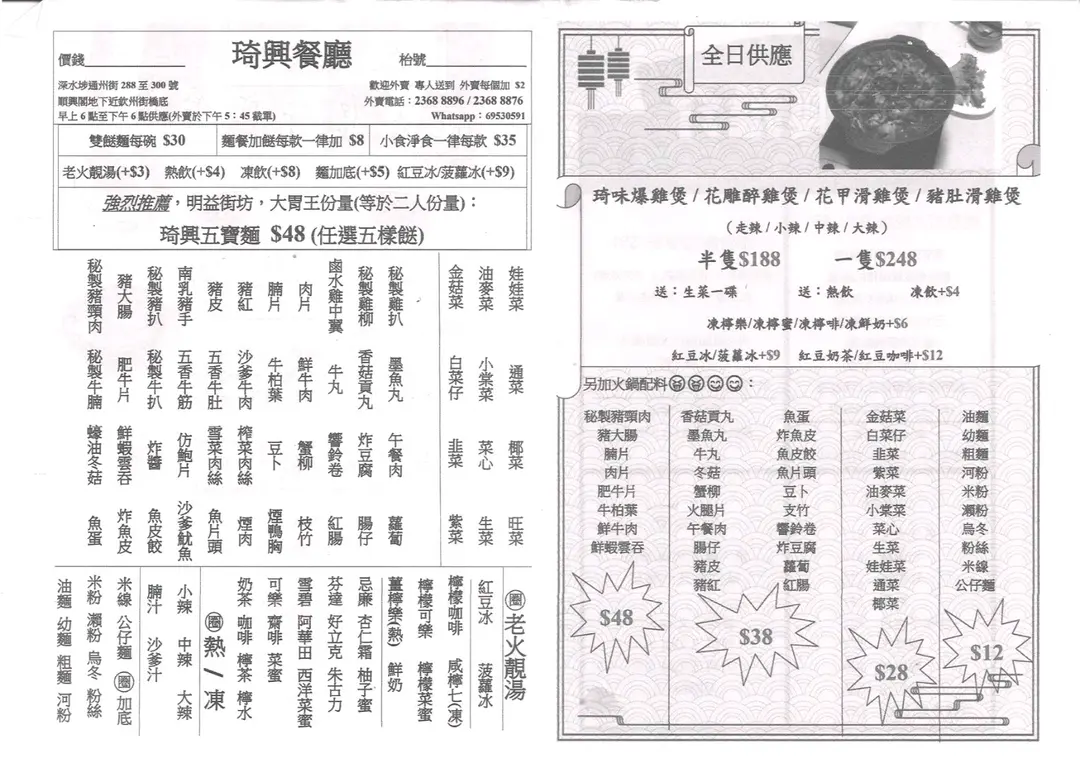 價錢
琦興餐廳
枱號
深水埗通州街 288 至 300 號
順興閣地下近欽州街橋底
早上 6 點至下午 6 點供應(外賣於下午 5：45 截單)
歡迎外賣 專人送到 外賣每個加 $2
外賣電話：2368 8896 / 2368 8876
Whatsapp：69530591
雙餸麵每碗 $30
麵餐加餸每款一律加 $8
小食淨食一律每款 $35
老火靚湯(+$3) 熱飲(+$4) 凍飲(+$8) 麵加底(+$5) 紅豆冰/菠蘿冰(+$9)
強烈推薦，明益街坊，大胃王份量(等於二人份量)：
琦興五寶麵 $48 (任選五樣餸)
娃娃菜 通菜 椰菜 旺菜
油麥菜 小棠菜 菜心 生菜
金菇菜 白菜仔 韭菜 紫菜
秘製雞扒 墨魚丸 午餐肉 蘿蔔
秘製雞柳 香菇貢丸 炸豆腐 腸仔
鹵水雞中翼 牛丸 響鈴卷 紅腸
肉片 鮮牛肉 蟹柳 枝竹
腩片 牛柏葉 豆卜 煙鴨胸
豬紅 沙爹牛肉 榨菜肉絲 煙肉
豬皮 五香牛肚 雪菜肉絲 魚片頭
南乳豬手 五香牛筋 仿鮑片 沙爹魷魚
秘製豬扒 秘製牛扒 炸醬 魚皮餃
豬大腸 肥牛片 鮮蝦雲吞 炸魚皮
秘製豬頸肉 秘製牛腩 蠔油冬菇 魚蛋
圈老火靚湯
紅豆冰 菠蘿冰
檸檬咖啡 咸檸七(凍)
檸檬可樂 檸檬菜蜜
薑檸樂(熱) 鮮奶
忌廉 杏仁霜 柚子蜜
芬達 好立克 朱古力
雪碧 阿華田 西洋菜蜜
可樂 齋啡 菜蜜
奶茶 咖啡 檸茶 檸水
圈熱 / 凍
小辣 中辣 大辣
腩汁 沙爹汁
米線 公仔麵 圈加底
米粉 瀨粉 烏冬 粉絲
油麵 幼麵 粗麵 河粉
全日供應
琦味爆雞煲 / 花雕醉雞煲 / 花甲滑雞煲 / 豬肚滑雞煲
（走辣 / 小辣 / 中辣 / 大辣）
半隻$188 一隻$248
送：生菜一碟 送：熱飲 凍飲+$4
凍檸樂/凍檸蜜/凍檸啡/凍鮮奶+$6
紅豆冰/菠蘿冰+$9 紅豆奶茶/紅豆咖啡+$12
另加火鍋配料：
秘製豬頸肉 香菇貢丸 魚蛋 金菇菜 油麵
豬大腸 墨魚丸 炸魚皮 白菜仔 幼麵
腩片 牛丸 魚皮餃 韭菜 粗麵
肉片 冬菇 魚片頭 紫菜 河粉
肥牛片 蟹柳 豆卜 油麥菜 米粉
牛柏葉 火腿片 支竹 小棠菜 瀨粉
鮮牛肉 午餐肉 響鈴卷 菜心 烏冬
鮮蝦雲吞 腸仔 炸豆腐 生菜 粉絲
豬皮 蘿蔔 娃娃菜 米線
豬紅 紅腸 通菜 公仔麵
椰菜
$48
$38
$28
$12